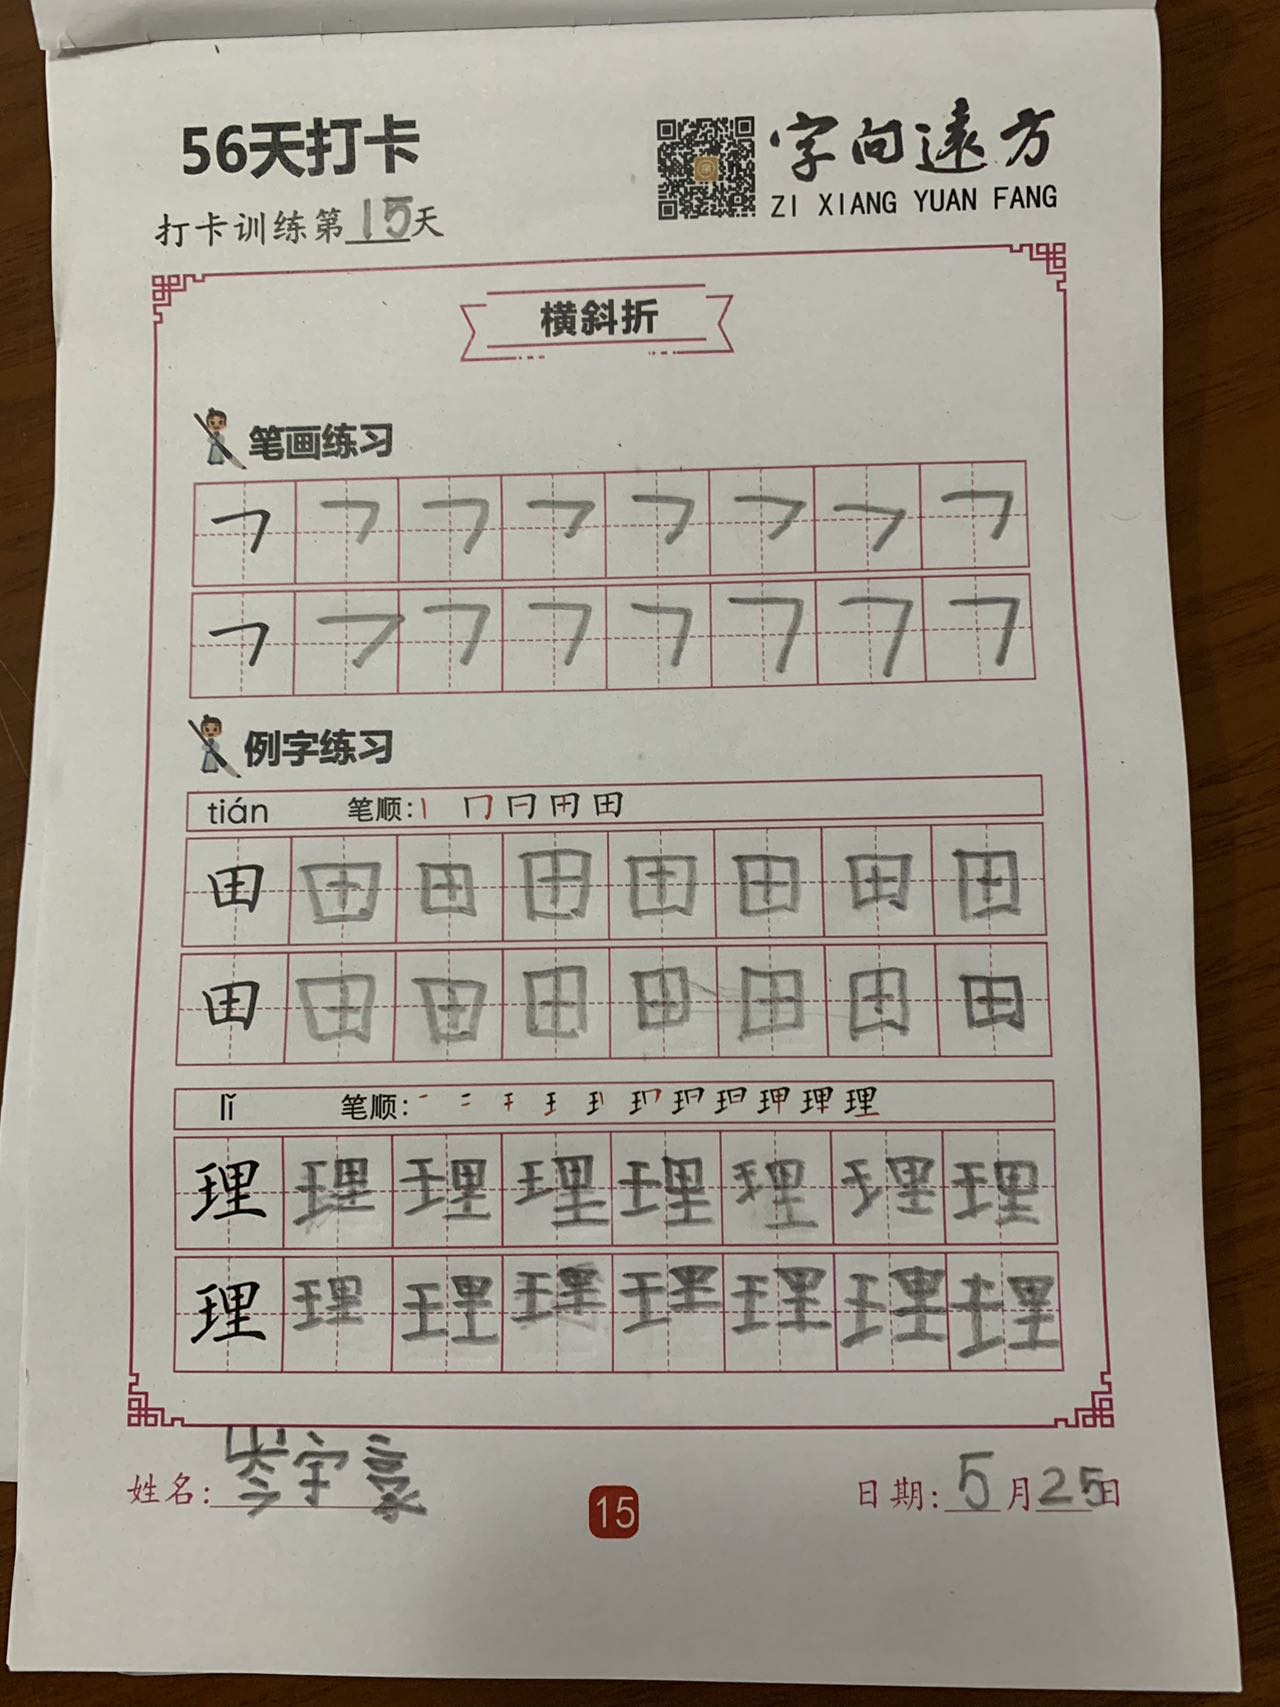 56天打卡
字向遠方
ZI XIANG YUAN FANG
打卡训练第15天
横斜折
笔画练习
例字练习
tián 笔顺: 丨 冂 日 田 田
田 田 田 田 田 田 田 田
田 田 田 田 田 田 田 田
lǐ 笔顺:
理 理 理 理 理 理 理 理
理 理 理 理 理 理 理 理
姓名: 岑宇豪
15
日期: 5月25日